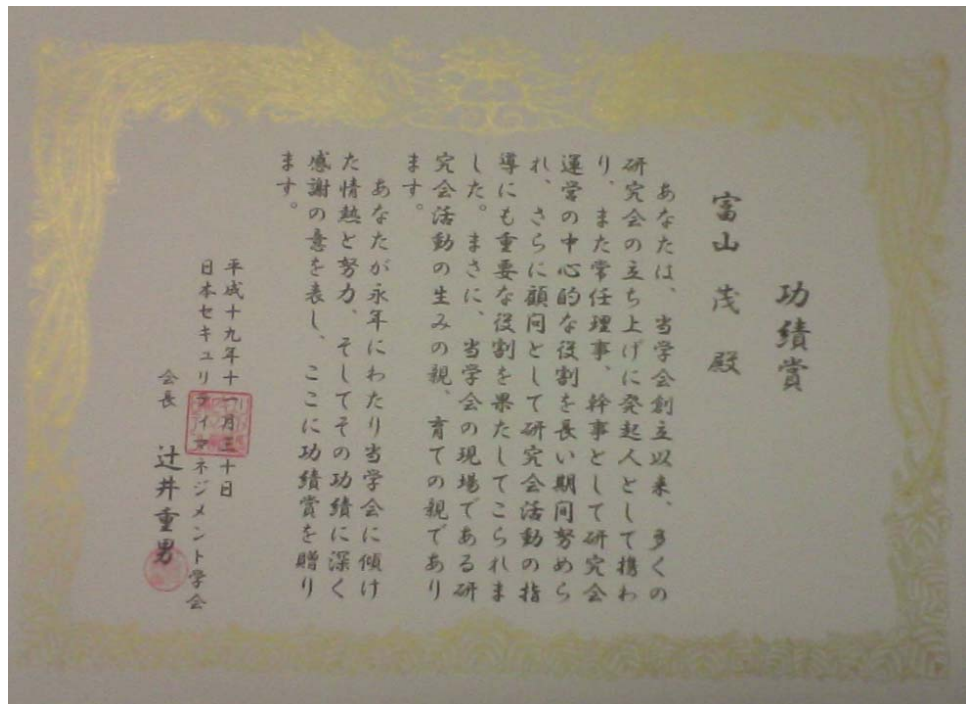 功績賞
富山 茂 殿
あなたは、当学会創立以来、多くの
研究会の立ち上げに発起人として携わ
り、また常任理事、幹事として研究会
運営の中心的な役割を長い期間努めら
れ、さらに顧問として研究会活動の指
導にも重要な役割を果たしてこられま
した。まさに、当学会の現場である研
究会活動の生みの親、育ての親であり
ます。
あなたが永年にわたり当学会に傾け
た情熱と努力、そしてその功績に深く
感謝の意を表し、ここに功績賞を贈り
ます。
平成十九年十一月三十日
日本セキュリティマネジメント学会
会長 辻井重男